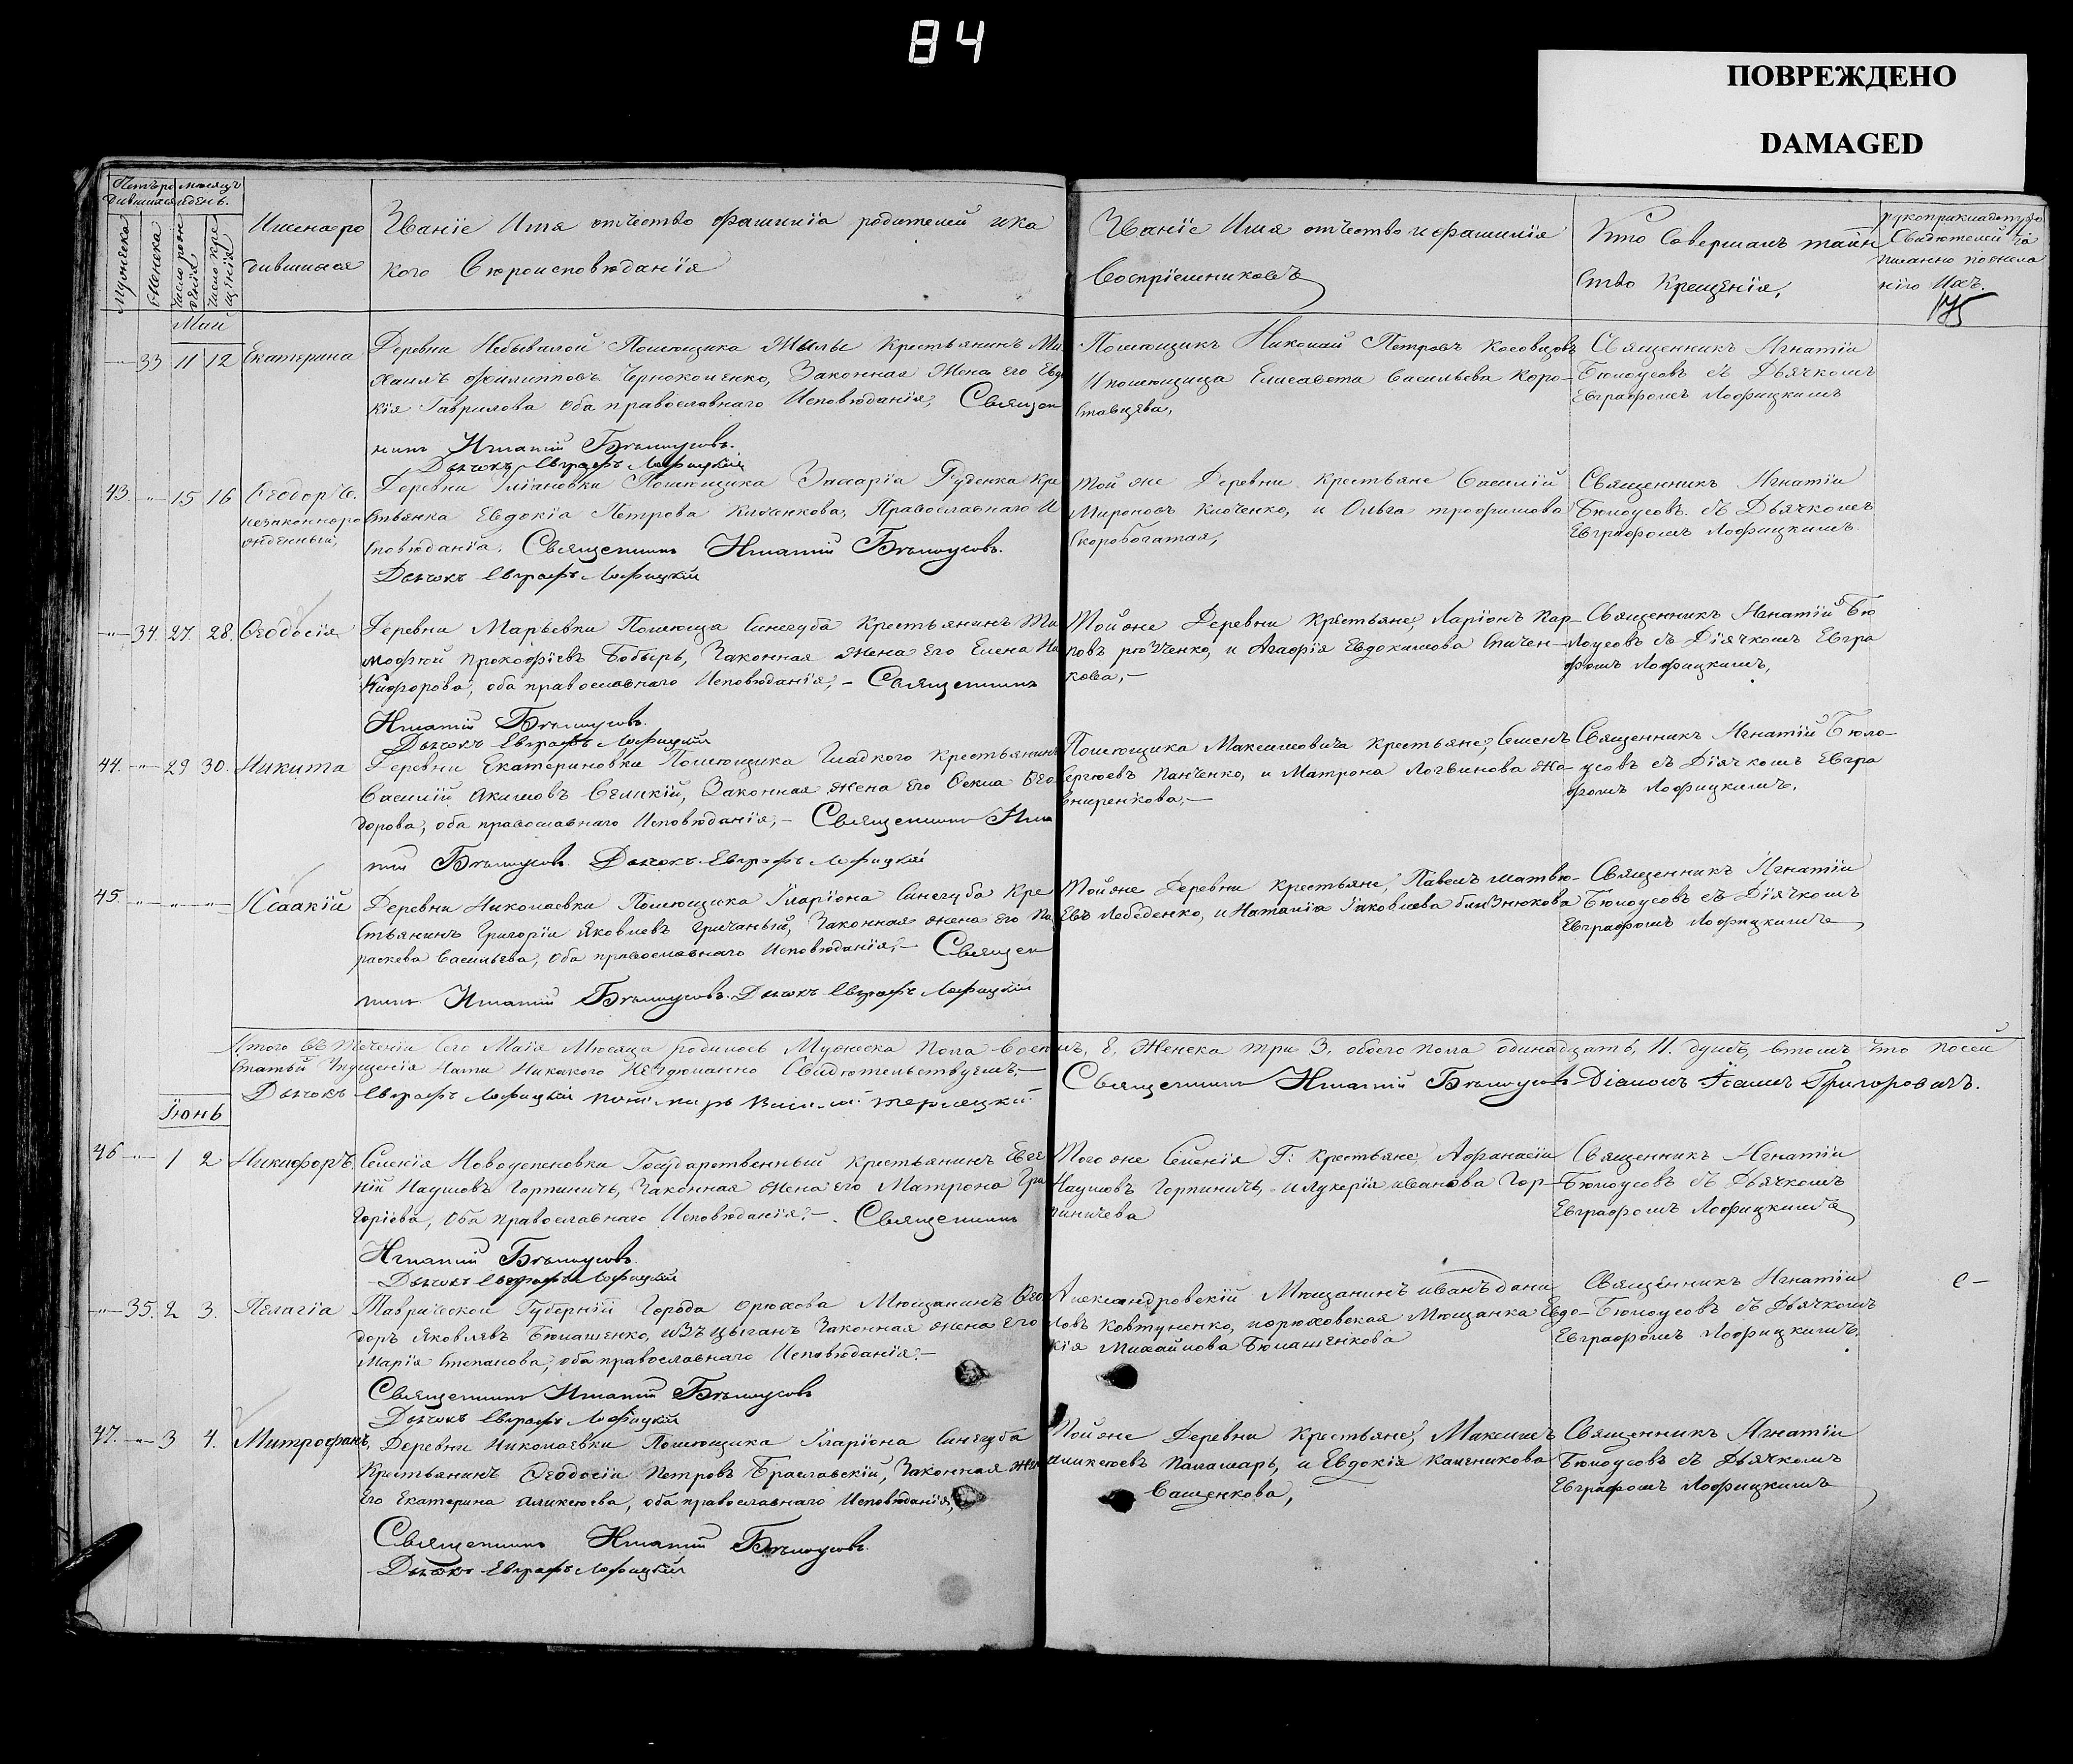 84
ПОВРЕЖДЕНО
DAMAGED
мѣсяцъ
и день.
Мужеска
Женска
Число рож
денія
Число кре
щенія
Имена ро
дившихся
Званіе Имя отчество фамиліа родителей и ка
кого Вѣроисповѣданія
Званіе Имя отчество и фамилія
Воспріемниковъ
Кто Совершалъ таин
ство Крещенія,
Свидѣтелей
175
Май
33 11 12 Екатерина
Деревни Небывалой Помѣщика Крестьянинъ Ми
хаилъ Филипповъ Чернокоменко, Законная Жена его Евдо
кія Гаврилова оба православнаго Исповѣданія, Священ
никъ Игнатій Бѣлоусовъ.
Дьячокъ Евграфъ Лофицкій
Помѣщикъ Николай Петровъ Косовцовъ
И помѣщица Елисавета Васильева Коро-
ставцева,
Священникъ Игнатіи
Бѣлоусовъ съ Дьячкомъ
Евграфомъ Лофицкимъ
43. 15 16 Ѳеодоръ
незаконноро
жденный,
Деревни Помѣщика Руденка Кре
стьянка Евдокіа Петрова Клоченкова, Православнаго И
сповѣданіа. Священникъ Игнатій Бѣлоусовъ.
Дьячокъ Евграфъ Лофицкій
Той же Деревни Крестьяне Василій
Мироновъ Клоченко, и Ольга трофимова
Скоробогатая,
Священникъ Игнатіи
Бѣлоусовъ. съ Дьячкомъ
Евграфомъ Лофицкимъ.
34. 27. 28. Ѳеодосія
Деревни Марьевки Помѣща Синегуба Крестьянинъ Ти
мофѣй Прокофіевъ Бобырь, Законная жена его Елена Ни
кифорова, оба православнаго Исповѣданія,- Священникъ
Игнатій Бѣлоусовъ.
Дьячокъ Евграфъ Лофицкій
Той же Деревни Крестьяне, Ларіонъ Кар-
повъ и Агафія Евдокимова Спичен-
кова,-
Священникъ Игнатій Бѣ
лоусовъ съ Діячкомъ Евгра
фомъ Лофицкимъ,
44. 29 30. Никита
Деревни Екатериновки Помѣщика Гладкого Крестьянинъ
Василій Акимовъ Великій, Законная жена его Ѳекла Ѳео
дорова, оба православнаго Исповѣданія,- Священникъ Игна
тій Бѣлоусовъ. Дьячокъ Евграфъ Лофицкій
Помѣщика Максимовича Крестьяне, Семенъ
Сергѣевъ Панченко, и Матрона Логвинова Жа-
вниренкова,-
Священникъ Игнатій Бѣло-
усовъ съ Діячкомъ Евгра
фомъ Лофицкимъ.
45. Исаакій
Деревни Николаевки Помѣщика Іларіона Синегуба Кре
стьянинъ Григоріи Яковлевъ Гричаный, Законная жена его Па
раскева Васильева, оба православнаго Исповѣданія,- Священ
никъ Игнатій Бѣлоусовъ. Дьячокъ Евграфъ Лофицкій
Той же Деревни Крестьяне, Павелъ матвѣ-
евъ Лебеденко, и Наталіа Іаковлева
Священникъ Игнатіи
Бѣлоусовъ съ Діячкомъ
Евграфомъ Лофицкимъ
Итого въ теченіи сего Маіа Мѣсяца родилось Мужеска пола Восемь, 8, Женска три 3. обоего пола одинадцать, 11. душъ, втомъ что по сей
Статьи Упущенія Нами Никакого Свидѣтельствуемъ,-
Дьячокъ Евграфъ Лофицкій
Священникъ Игнатій Бѣлоусовъ Діаконъ Іоаннъ Григоровичъ.
Іюнь
46 1 2 Никифоръ
Селенія Новоуспеновки Государственный Крестьянинъ Евге
ній Наумовъ Горпиничъ, Законная жена его Матрона Гри
горіева, Оба православнаго Исповѣданія.- Священникъ
Игнатій Бѣлоусовъ.
Дьячокъ Евграфъ Лофицкій
Того же Селенія Г: Крестьяне Афанасіи
Наумовъ Горпиничъ, и Лукерія иванова Гор-
пиничева
Священникъ Игнатіи
Бѣлоусовъ съ Дьячкомъ
Евграфомъ Лофицкимъ
35. 2 3. Пелагіа
Таврической Губерніи Города Орѣхова Мѣщанинъ Ѳео
доръ Яковлевъ Бѣлашенко, изъ цыганъ Законная жена его
Марія Степанова, оба православнаго Исповѣданія.-
Священникъ Игнатій Бѣлоусовъ
Дьячокъ Евграфъ Лофицкій
Александровскій Мѣщанинъ иванъ дани
ловъ Ковтуненко, иорѣховская Мѣщанка Евдо-
кія Михайлова Бѣлашенкова
Священникъ Игнатіи
Бѣлоусовъ съ Дьячкомъ
Евграфомъ Лофицкимъ.
47. 3 4. Митрофанъ,
Деревни Николаевки Помѣщика Іларіона Синегуба
Крестьянинъ Ѳеодосіи Петровъ Браславскій, Законная жена
его Екатерина Аликсѣева, оба православнаго Исповѣданія,
Священникъ Игнатій Бѣлоусовъ.
Дьячокъ Евграфъ Лофицкій
Той же Деревни Крестьяне, Максимъ
аликсѣевъ Паламарь, и Евдокія Калникова
Сащенкова,
Священникъ Игнатіи
Бѣлоусовъ съ Дьячкомъ
Евграфомъ Лофицкимъ